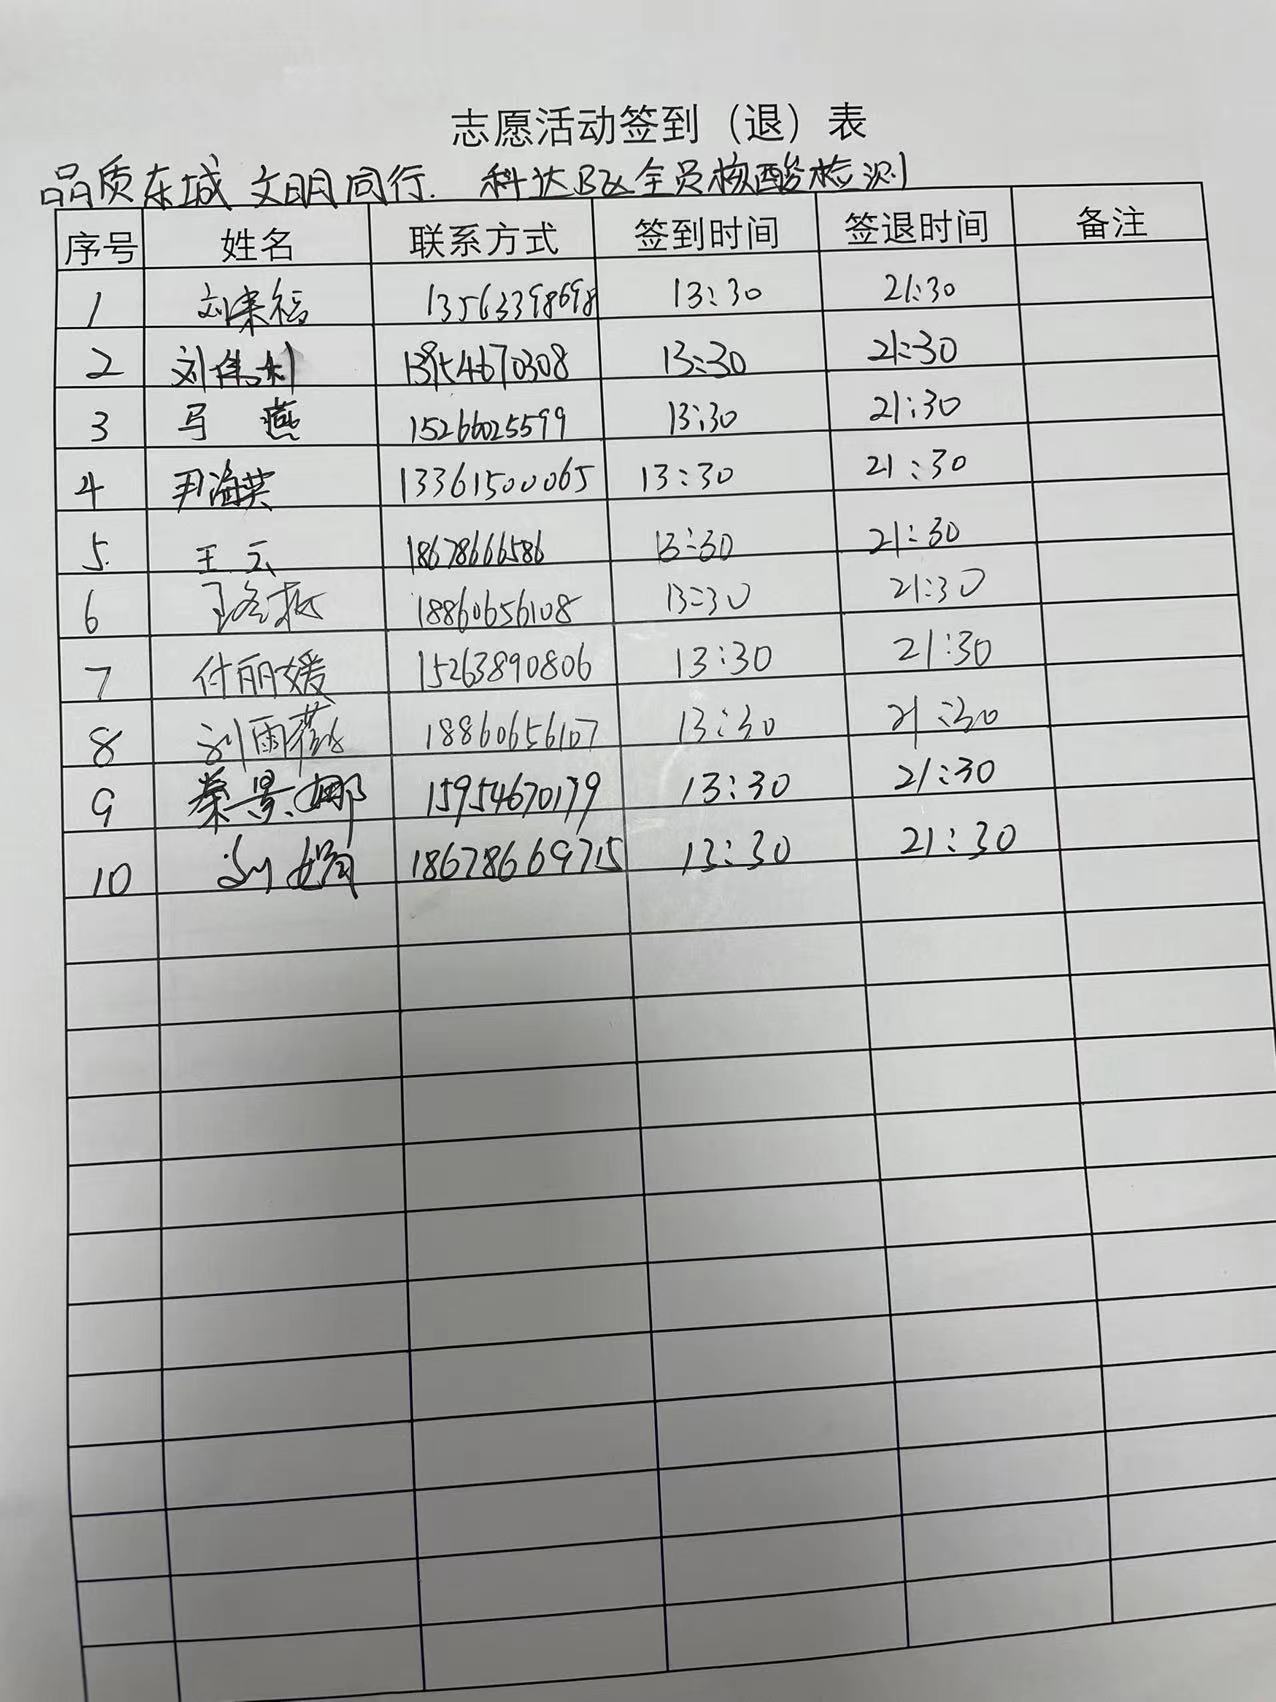 志愿活动签到（退）表
品质东城 文明同行. 科达B区全员核酸检测
序号 姓名 联系方式 签到时间 签退时间 备注
1 刘来福 13563398698 13:30 21:30
2 刘伟利 21:30 13:30
3 马燕 15266025599 13:30 21:30
4 尹海英 13361500065 13:30 21:30
5. 王云 18678666586 13:30 21:30
6 18860656108 13:30 21:30
7 付丽媛 15263890806 13:30 21:30
8 刘雨薇 18860656107 13:30 21:30
9 荣景娜 15954670179 13:30 21:30
10 刘娟 18678669715 13:30 21:30